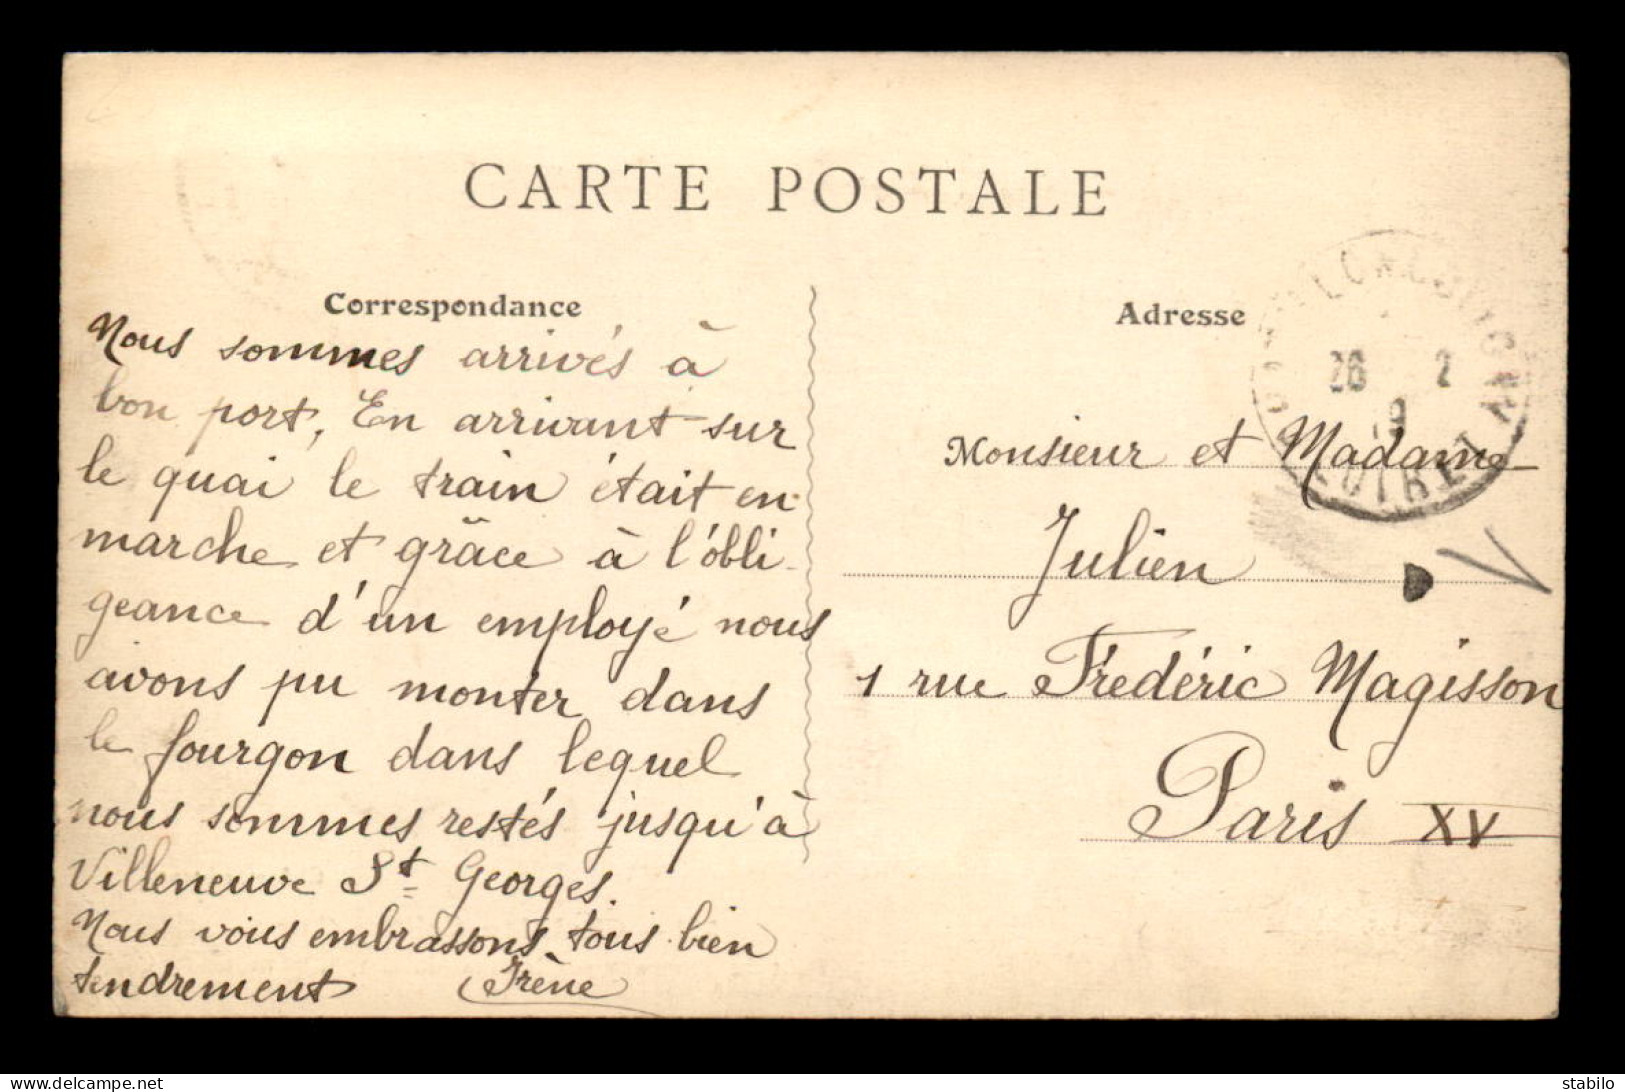 CARTE POSTALE
Correspondance
Nous sommes arrivés à
bon port, En arrivant sur
le quai le train était en
marche et grâce à l'obli-
geance d'un employé nous
avons pu monter dans
le fourgon dans lequel
nous sommes restés jusqu'à
Villeneuve St Georges.
Nous vous embrassons tous bien
tendrement Irène
Adresse
26 2
19
LOIRET
Monsieur et Madame
Julien
1 rue Frédéric Magisson
Paris XV
delcampe.net
stabilo